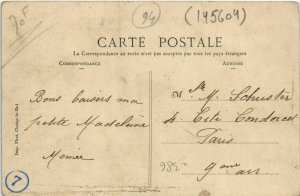 70F
94
(195604)
CARTE POSTALE
La Correspondance au recto n'est pas acceptée par tous les pays étrangers
CORRESPONDANCE
ADRESSE
Bons baisers ma
petite Madeleine
Mlle M. Schuster
4. Cité Condorcet
Paris
9eme arr
982
7